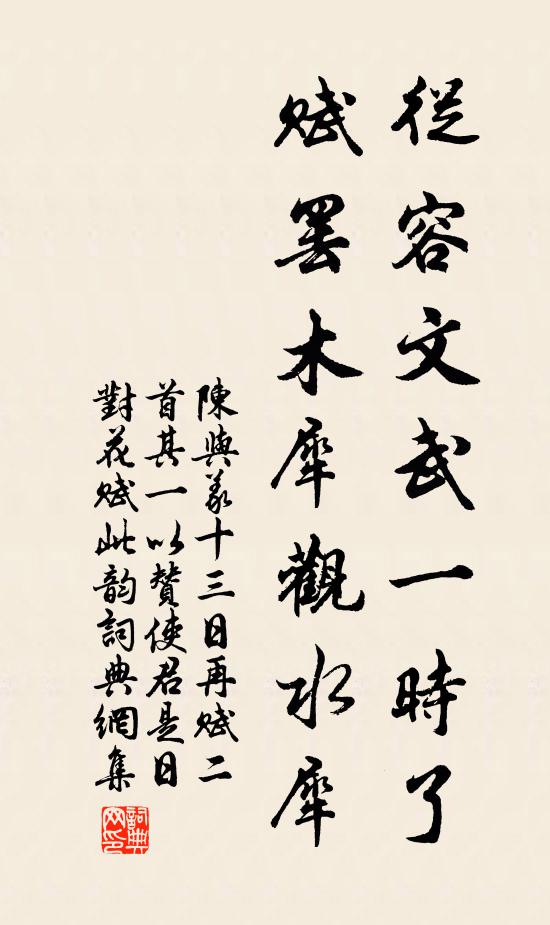 從容文武一時了
賦罷木犀觀水犀
陳與義十三日再賦二
首其一以贊使君是日
對花賦此韵詞典網集
詞典网印